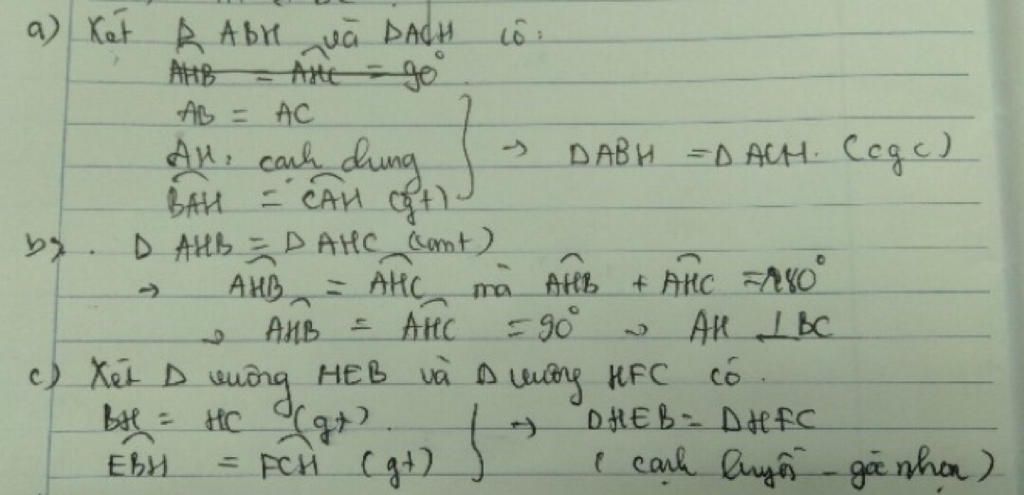 a) Xét Δ ABH và ΔACH có:
AHB = AHC = 90°
AB = AC
AH: cạnh chung
BAH = CAH (gt) } → ΔABH = ΔACH. (cgc)
b). Δ AHB = Δ AHC (cmt)
→ AHB = AHC mà AHB + AHC = 180°
→ AHB = AHC = 90° → AH ⊥ BC
c) Xét Δ vuông HEB và Δ vuông HFC có.
BH = HC (gt).
EBH = FCH (gt) } → ΔHEB = ΔHFC
(cạnh huyền - góc nhọn)